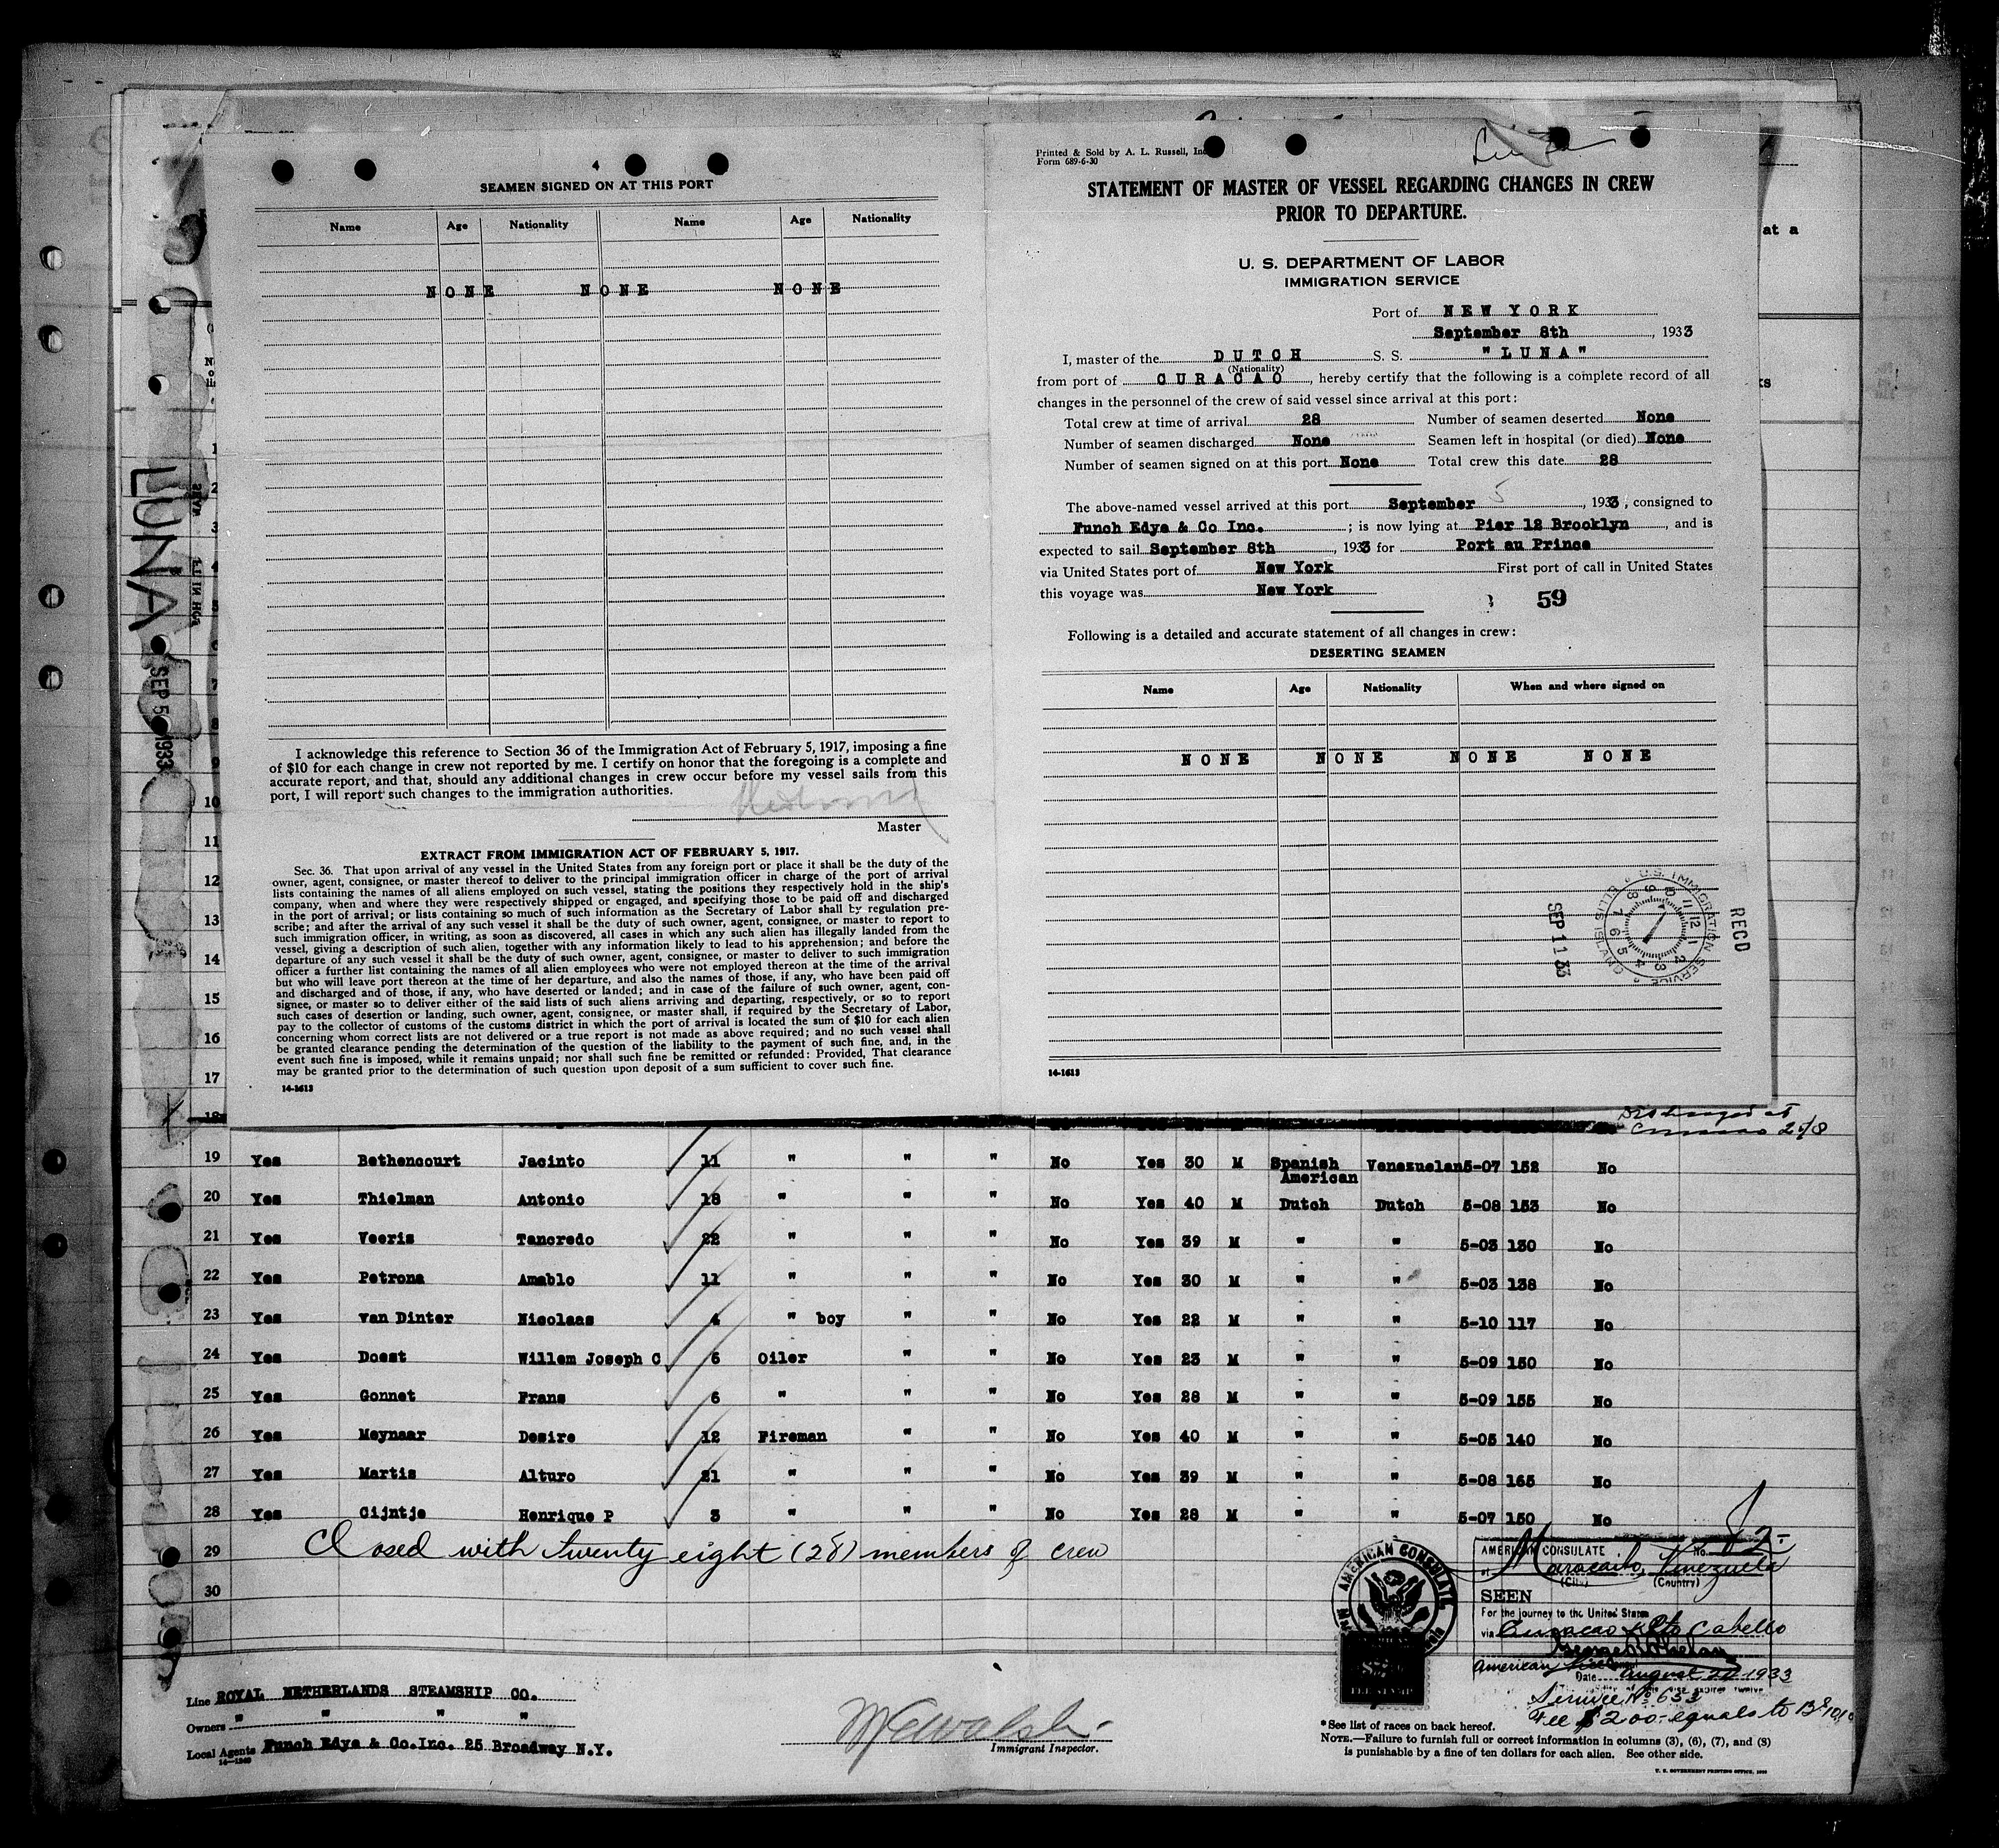 4
SEAMEN SIGNED ON AT THIS PORT
Name Age Nationality Name Age Nationality
NONE NONE NONE
I acknowledge this reference to Section 36 of the Immigration Act of February 5, 1917, imposing a fine
of $10 for each change in crew not reported by me. I certify on honor that the foregoing is a complete and
accurate report, and that, should any additional changes in crew occur before my vessel sails from this
port, I will report such changes to the immigration authorities.
Master
EXTRACT FROM IMMIGRATION ACT OF FEBRUARY 5, 1917.
Sec. 36. That upon arrival of any vessel in the United States from any foreign port or place it shall be the duty of the
owner, agent, consignee, or master thereof to deliver to the principal immigration officer in charge of the port of arrival
lists containing the names of all aliens employed on such vessel, stating the positions they respectively hold in the ship's
company, when and where they were respectively shipped or engaged, and specifying those to be paid off and discharged
in the port of arrival; or lists containing so much of such information as the Secretary of Labor shall by regulation pre-
scribe; and after the arrival of any such vessel it shall be the duty of such owner, agent, consignee, or master to report to
such immigration officer, in writing, as soon as discovered, all cases in which any such alien has illegally landed from the
vessel, giving a description of such alien, together with any information likely to lead to his apprehension; and before the
departure of any such vessel it shall be the duty of such owner, agent, consignee, or master to deliver to such immigration
officer a further list containing the names of all alien employees who were not employed thereon at the time of the arrival
but who will leave port thereon at the time of her departure, and also the names of those, if any, who have been paid off
and discharged and of those, if any, who have deserted or landed; and in case of the failure of such owner, agent, con-
signee, or master so to deliver either of the said lists of such aliens arriving and departing, respectively, or so to report
such cases of desertion or landing, such owner, agent, consignee, or master shall, if required by the Secretary of Labor,
pay to the collector of customs of the customs district in which the port of arrival is located the sum of $10 for each alien
concerning whom correct lists are not delivered or a true report is not made as above required; and no such vessel shall
be granted clearance pending the determination of the question of the liability to the payment of such fine, and, in the
event such fine is imposed, while it remains unpaid; nor shall such fine be remitted or refunded: Provided, That clearance
may be granted prior to the determination of such question upon deposit of a sum sufficient to cover such fine.
14-1613
Printed & Sold by A. L. Russell, Inc
Form 689-6-30
STATEMENT OF MASTER OF VESSEL REGARDING CHANGES IN CREW
PRIOR TO DEPARTURE.
U. S. DEPARTMENT OF LABOR
IMMIGRATION SERVICE
Port of NEW YORK
September 8th, 1933
I, master of the DUTCH S. S. "LUNA"
(Nationality)
from port of CURACAO, hereby certify that the following is a complete record of all
changes in the personnel of the crew of said vessel since arrival at this port:
Total crew at time of arrival 28 Number of seamen deserted None
Number of seamen discharged None Seamen left in hospital (or died) None
Number of seamen signed on at this port None Total crew this date 28
The above-named vessel arrived at this port September 5, 1933, consigned to
Funch Edye & Co Inc. ; is now lying at Pier 12 Brooklyn, and is
expected to sail September 8th, 1933 for Port au Prince
via United States port of New York First port of call in United States
this voyage was New York
59
Following is a detailed and accurate statement of all changes in crew:
DESERTING SEAMEN
Name Age Nationality When and where signed on
NONE NONE NONE NONE
RECD
U.S. IMMIGRATION SERVICE ELLIS ISLAND
SEP 11 33
14-1613
at a
ks
LUNA
SEP 5 1933
1
2
3
4
5
6
7
8
9
10
11
12
13
14
15
16
17
18
Discharged at
Curacao 24/8
19 Yes Bethencourt Jacinto 11 " " " No Yes 30 M Spanish American Venezuelan 5-07 152 No
20 Yes Thielman Antonio 18 " " " No Yes 40 M Dutch Dutch 5-08 153 No
21 Yes Veeris Tancredo 22 " " " No Yes 39 M " " 5-03 130 No
22 Yes Petrona Amablo 11 " " " No Yes 30 M " " 5-03 138 No
23 Yes van Dinter Nicolaas 4 " boy " " No Yes 22 M " " 5-10 117 No
24 Yes Doest Willem Joseph C 6 Oiler " " No Yes 23 M " " 5-09 150 No
25 Yes Gonnet Frans 6 " " " No Yes 28 M " " 5-09 155 No
26 Yes Meynaar Desire 12 Fireman " " No Yes 40 M " " 5-05 140 No
27 Yes Martis Alturo 21 " " " No Yes 39 M " " 5-08 165 No
28 Yes Cijntje Henrique P 3 " " " No Yes 28 M " " 5-07 150 No
29 Closed with twenty eight (28) members of crew
30
AMERICAN CONSULATE
AMERICAN CONSULATE No. 82
at Maracaibo, Venezuela
(City) (Country)
SEEN
For the journey to the United States
via Curacao & Pto Cabello
American Vice
Date August 21 1933
Service No 633
Fee $2.00 equals to Bs
Line ROYAL NETHERLANDS STEAMSHIP CO.
Owners " " " "
Local Agents Funch Edye & Co.Inc. 25 Broadway N.Y.
14-1240
Immigrant Inspector.
*See list of races on back hereof.
NOTE.—Failure to furnish full or correct information in columns (3), (6), (7), and (8)
is punishable by a fine of ten dollars for each alien. See other side.